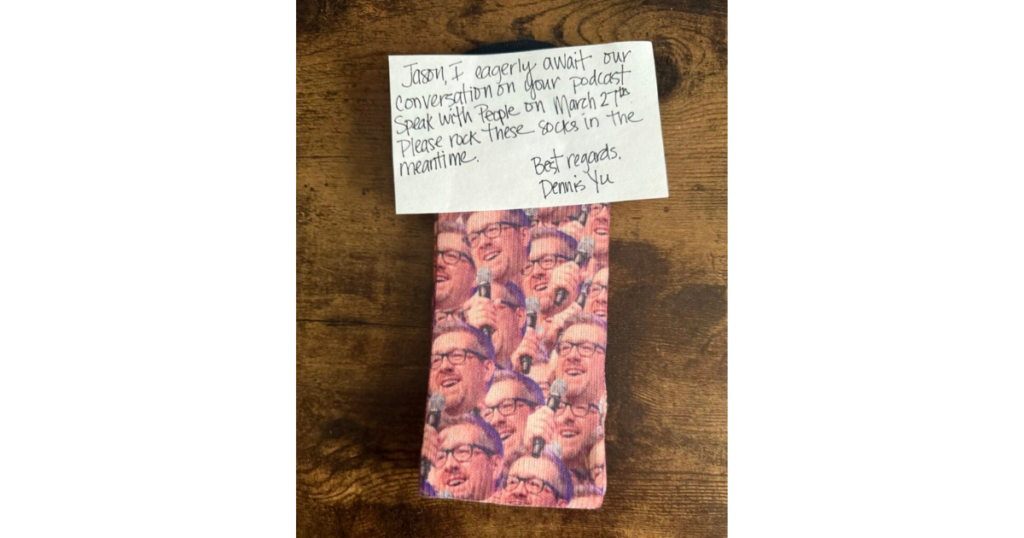 Jason, I eagerly await our
conversation on your podcast
Speak with People on March 27th.
Please rock these socks in the
meantime.
Best regards.
Dennis Yu